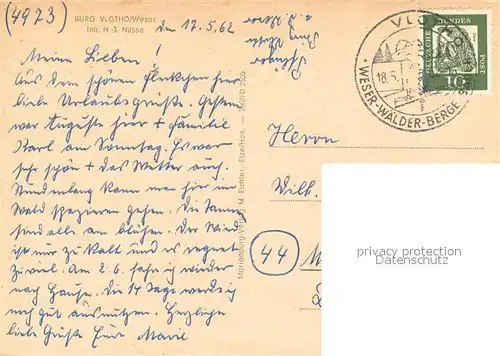 (4973)
BURG VLOTHO/Weser
Inh. H.-J. Nüsse
den 17.5.62
Meine Lieben!
Aus dem schönen Fleckchen hier
liebe Urlaubsgrüße. Gestern
war Auguste hier + Familie
Karl am Sonntag. Es war
sehr schön + das Wetter auch.
Stundenlang kann man hier im
Wald spazieren gehen. Die Tannen
sind alle am blühen. Der Wind
ist nur zu kalt und es regnet
zuviel. Am 2.6. fahr ich wieder
nach Hause. Die 14 Tage werde ich
noch gut ausnutzen. Herzliche
liebe Grüße Eure
Marienberg-Verlag M. Eichler, Elze/Han.
VLOTHO
18.5.
WESER-WÄLDER-BERGE
DEUTSCHE BUNDESPOST
10
Herrn
Wilh.
(44)
privacy protection
Datenschutz